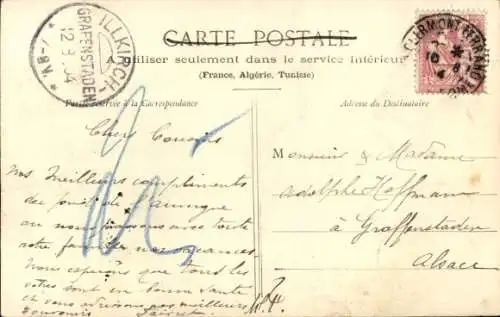 CARTE POSTALE
A utiliser seulement dans le service intérieur
(France, Algérie, Tunisie)
Partie réservée à la Correspondance
Adresse du Destinataire
ILLKIRCH-
GRAFENSTADEN
CLERMONT-FERRAND
Chers Cousins
Nos Meilleurs compliments
du fond de l'auvergne
ou nous passons avec toute
notre famille nos vacances.
Nous espérons que tous les
votres sont en bonne santé
et vous adressons nos meilleurs
souvenirs
Monsieur & Madame
Adolphe Hoffmann
à Graffenstaden
Alsace